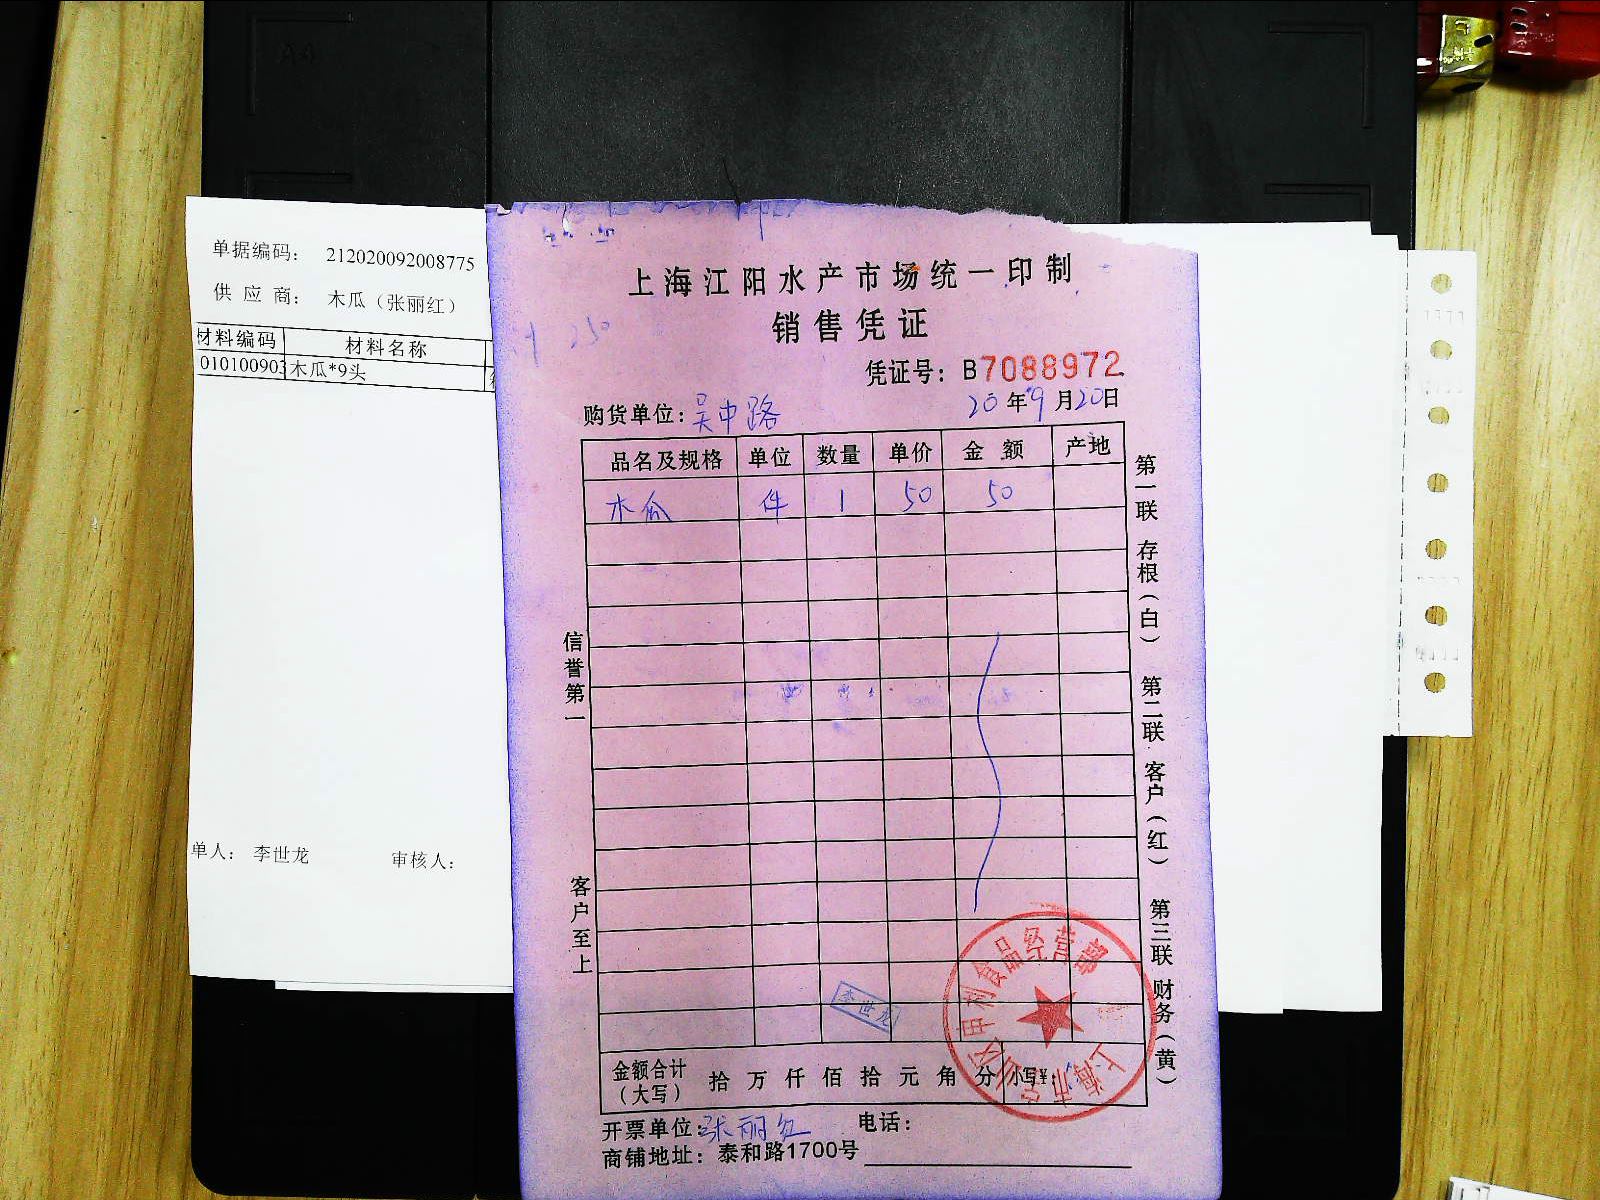 单据编码： 212020092008775
供 应 商： 木瓜（张丽红）
材料编码 材料名称
010100903 木瓜*9头
单人： 李世龙 审核人：
上海江阳水产市场统一印制
销售凭证
凭证号：B7088972
购货单位：吴中路 20年9月20日
品名及规格 单位 数量 单价 金 额 产地
木瓜 件 1 50 50
金额合计（大写） 拾 万 仟 佰 拾 元 角 分 小写¥：
开票单位：张丽红 电话：
商铺地址：泰和路1700号
信誉第一
客户至上
第一联 存根（白） 第二联 客户（红） 第三联 财务（黄）
李世龙
食品经营部
250